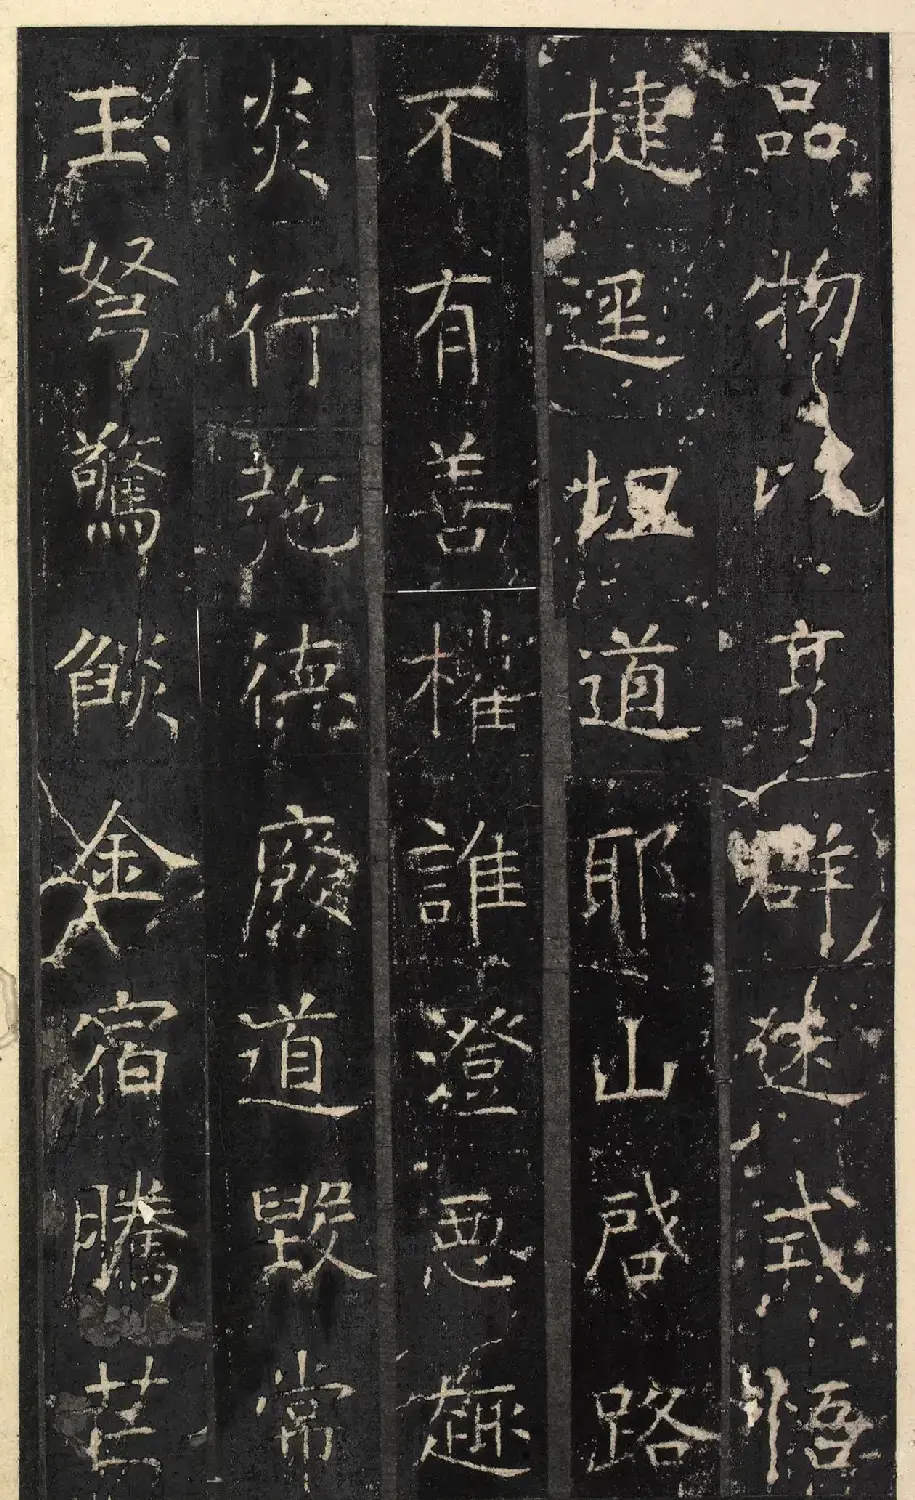 品物以亨群迷式悟
捷逕坦道耶山啓路
不有善權誰澄惡趣
炎行弛德廢道毀常
玉弩驚燄金宿騰芒